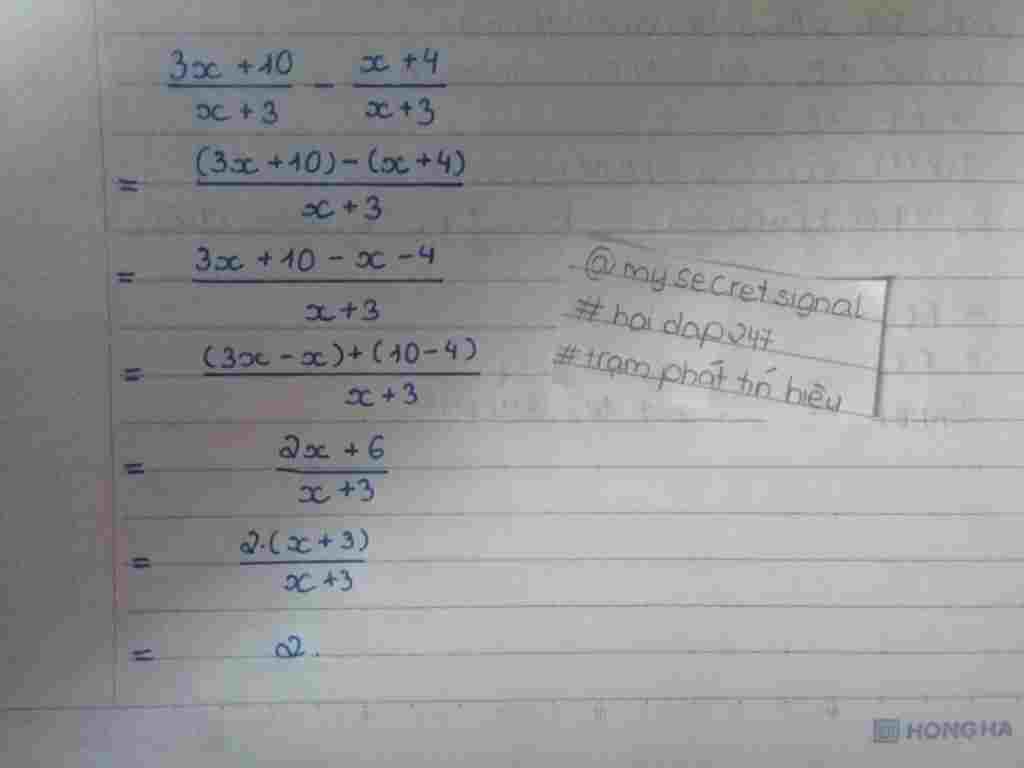 3x + 10 / x + 3 - x + 4 / x + 3
= (3x + 10) - (x + 4) / x + 3
= 3x + 10 - x - 4 / x + 3
= (3x - x) + (10 - 4) / x + 3
= 2x + 6 / x + 3
= 2.(x + 3) / x + 3
= 2.
@my.secret.signal
#hoidap247
#trạm phát tín hiệu
HONG HA